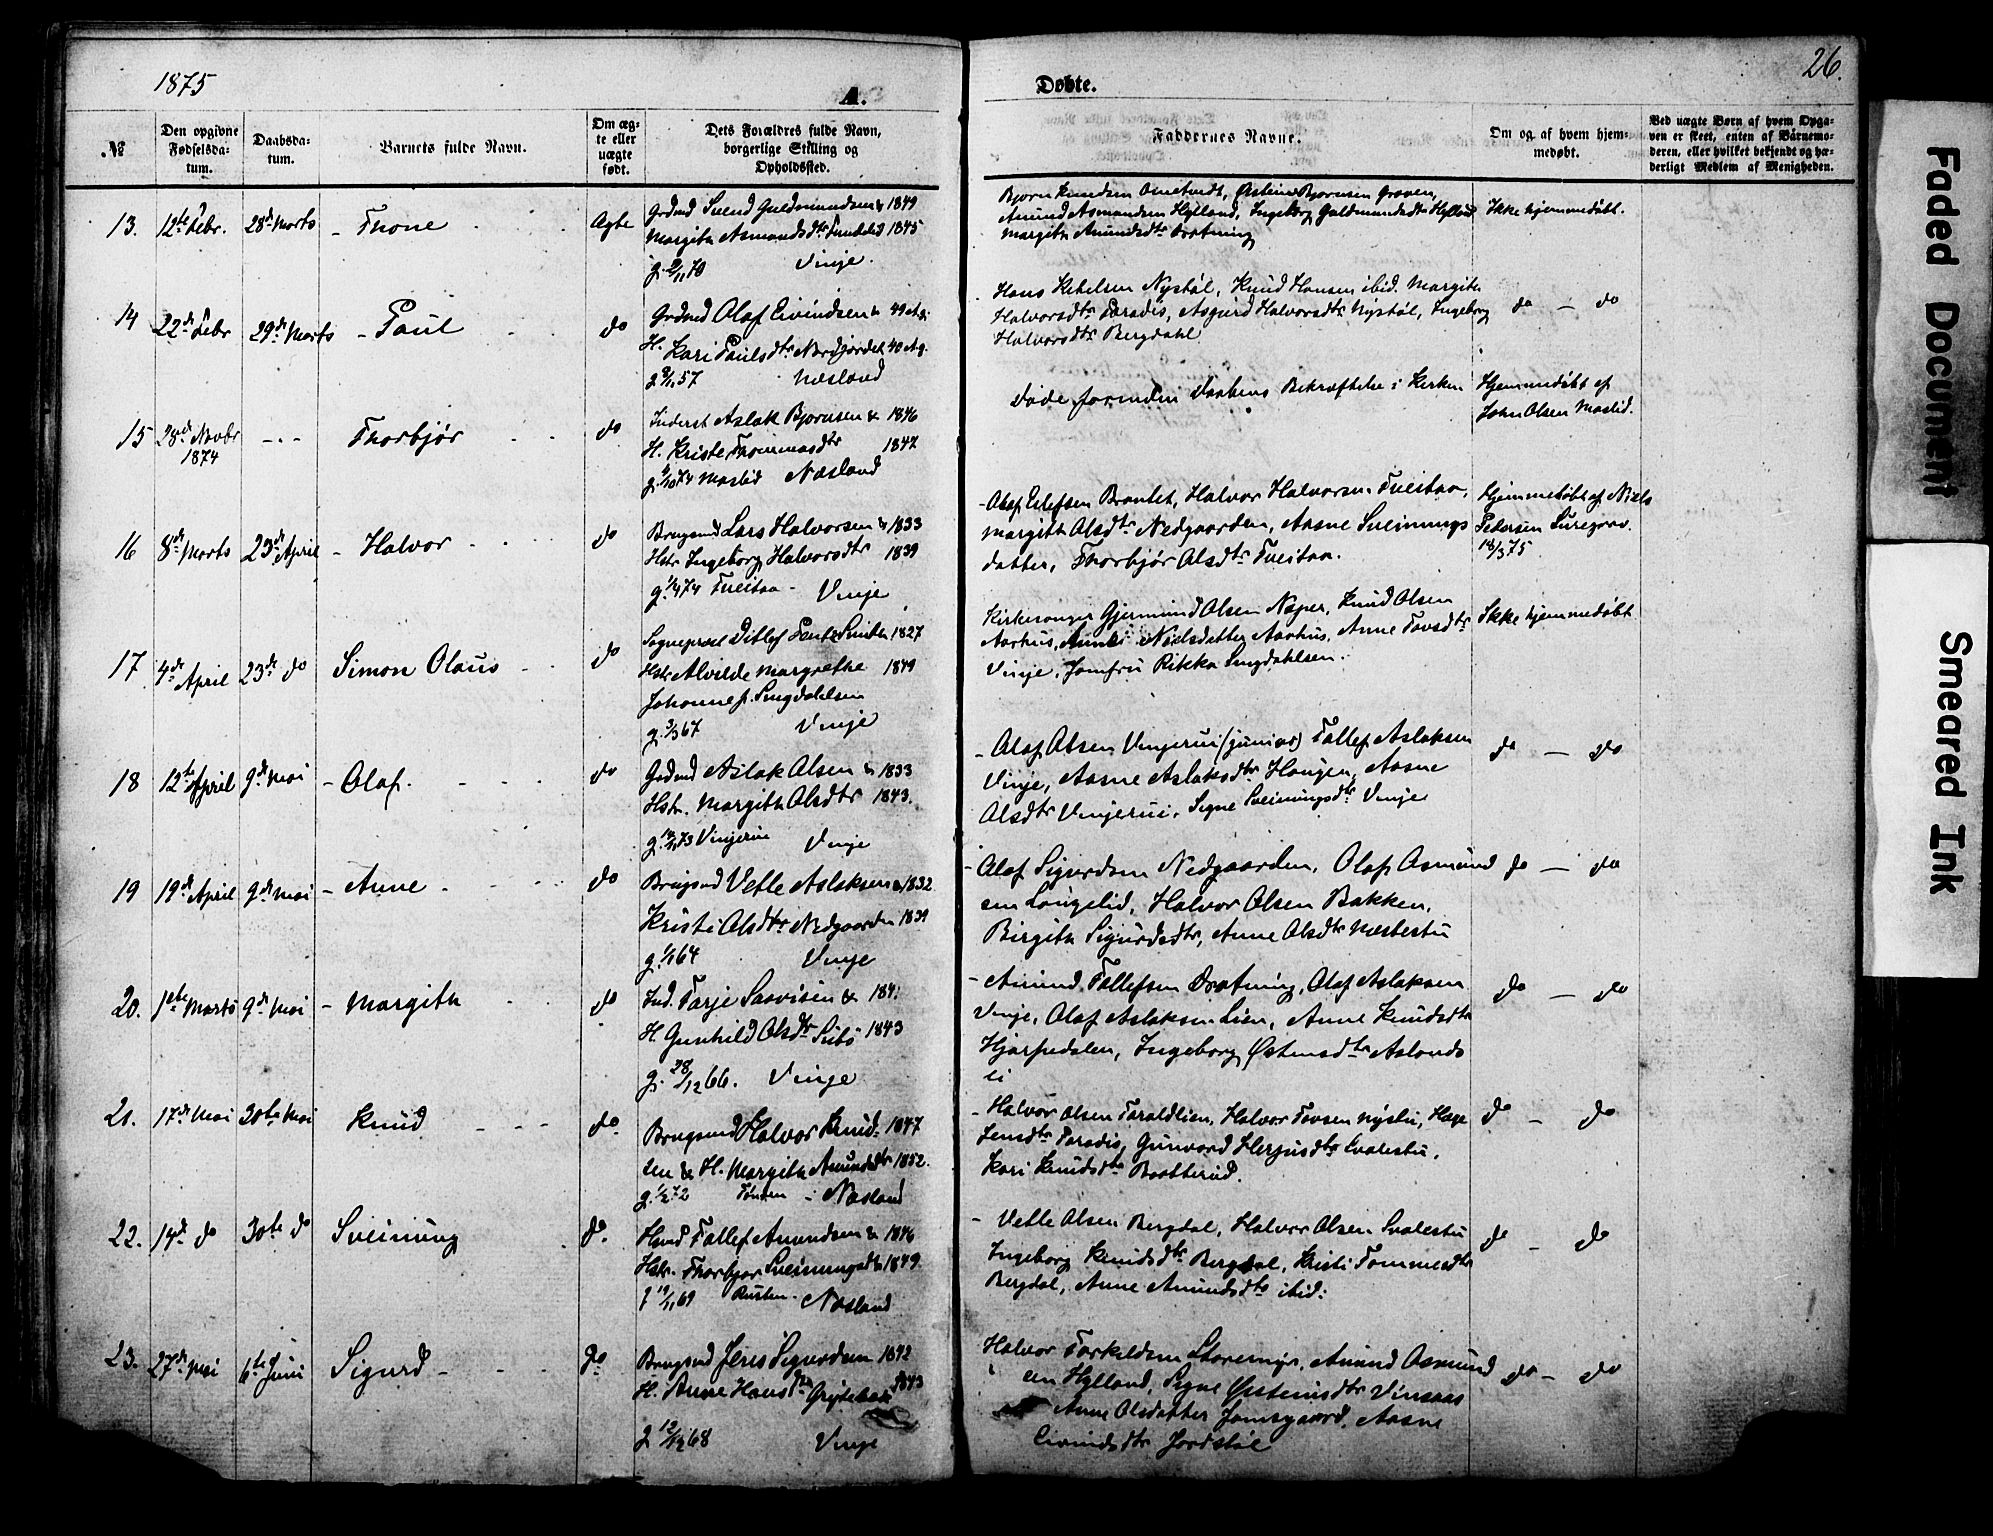 1875
A.
Døbte.
26.
№
Den opgivne Fødselsdatum.
Daabsdatum.
Barnets fulde Navn.
Om ægte eller uægte født.
Dets Forældres fulde Navn, borgerlige Stilling og Opholdssted.
Faddernes Navne.
Om og af hvem hjemmedøbt.
Ved uægte Børn af hvem Opgaven er skeet, enten af Barnemoderen, eller hvilket bekjendt og hæderligt Medlem af Menigheden.
13. 12te Febr. 28de Marts - Thone Ægte
Grdmd Svend Guldmundsen & 1849
Margith Asmundsdtr 1845
g. 9/11 70 Vinje.
Bjørn Knudsen Ometvedt, Østein Bjørnsen Groven,
Amund Asmundsen Hylland, Ingeborg Guldmundsdtr Hylland
Margith Amundsdtr Drotning
Ikke hjemmedøbt.
14 22de Febr 29de Marts - Paul do
Grdmd Olaf Eivindsen & 49 Ag.
H. Kari Paulsdtr Nordjordet 40 Ag.
57 Næsland
Hans Ketelsen Nystøl, Knud Hansen ibid. Margith
Halvorsdtr Paradis, Asgjerd Halvorsdtr Nystøl, Ingeborg
Halvorsdtr Bergdahl
do — do
15 28de Novbr 1874 - - - Thorbjør do
Inderst Aslak Bjørnsen & 1846
H. Kristi Thommasdtr 1847
g. 9/10 74 Maslid Næsland
Døde forinden Daabens Bekræftelse i Kirken
Hjemmedøbt af
John Olsen Maslid.
16 8de Marts 23de April - Halvor do
Brugsmd Lars Halvorsen & 1833
Hstr Ingeborg Halvorsdtr 1839
g. 74 Tveitaa - Vinje
- Olaf Eilefsen Brautet, Halvor Halvorsen Tveitaa,
Margith Olsdtr Nedgaarden, Aasne Sveinungs
datter, Thorbjør Olsdtr Tveitaa.
Hjemmedøbt af Niels
Pedersen
18/3 75
17 4de April 23de do Simon Olaus do
Sognepræst Ditlef Smith 1827
Hstr Alvilde Margrethe 1849
Johanne f. Smgdahlsen
g. 3/3 67 Vinje
Kirkesanger Gjermund Olsen Næper, Knud Olsen
Aarhus, Anne Nielsdatter Aarhus, Anne Tovsdtr
Vinje, Jomfru Rikka Smgdahlsen.
Ikke hjemmedøbt
18 12te April 9de Mai - Olaf. do
Grdmd Aslak Olsen & 1833
Hstr. Margith Olsdtr 1843.
73 Vinjerui Vinje
- Olaf Olsen Vinjerui (junior) Tallef Aslaksen
Vinje, Aasne Aslaksdtr Haugen, Aasne
Olsdtr Vinjerui, Signe Sveinungsdtr Vinje
do — do
19 19de April 9de Mai - Anne do
Brugsmd Vetle Aslaksen & 1832
Kristi Olsdtr Nedgaarden 1839
g. 1/1 64 Vinje
- Olaf Sigurdsen Nedgaarden, Olaf Asmund
sen Laugelid, Halvor Olsen Bakken,
Birgith Sigurdsdtr, Anne Olsdtr Mæstestu
do — do
20. 1ste Marts 9de Mai - Margith do
Ind. Tarje Saavisen & 184
H. Gunhild Olsdtr Subø 1843
g. 28/12 66. Vinje
- Amund Tallefsen Drotning, Olaf Aslaksen
Vinje, Olaf Aslaksen Lien, Anne Knudsdtr
Hjarpedalen, Ingeborg Østensdtr Aslands
ei
do — do
21. 17de Mai 30te Mai Knud do.
Brugsmd Halvor Knud- 1847
sen & H. Margith Amundsdtr 1852.
72 i Næsland
- Halvor Olsen Taraldlien, Halvor Tovsen Nystu, Hæge
Jensdtr Paradis, Gunvord Herjusdtr Svalestu,
Kari Knudsdtr
do — do
22. 14de do 30te do Sveinung do.
Hsmd Tallef Amundsen & 1846
Hstr. Thorbjør Sveinungsdtr 1849
69 Rusten. Næsland
- Vetle Olsen Bergdal, Halvor Olsen Svalestu
Ingeborg Knudsdtr Bergdal, Kristi Tommesdtr
Bergdal, Anne Amundsdtr ibid:
do — do
23. 27de Mai 6te Juni Sigurd do
Brugsmd Jens Sigurdsen 1842
H. Anne Hansdtr 1843
g 12/12 68 Vinje
Halvor Torkildsen Storemyr, Amund Osmund
sen Hylland, Signe Østensdtr Vinsaas
Anne Olsdatter Jamsgaard, Aasne
Eivindsdtr Jordstøl
do — do
Faded Document
Smeared Ink